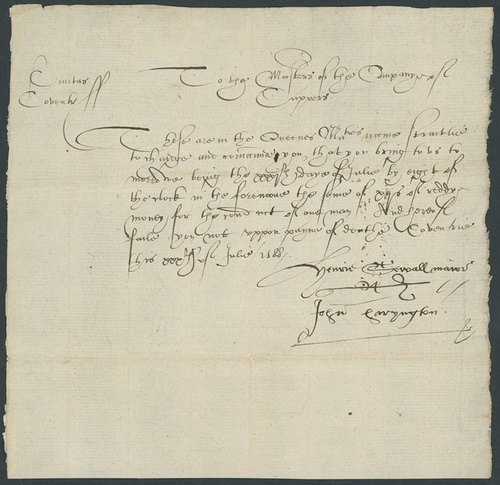 Civitas
Coventr
To the Masters of the Companye of
Cappers
These are in the Queenes Maties name straitlie
to charge and commaunde you, that you bring to us to
morrowe being the xxxth daye of Julie by eight of
the clock in the forenoone the some of of reddy
money for the of one man And hereof
faile you not uppon payne of deathe Coventrie
this of Julie
Henrie maior
John Caryngton